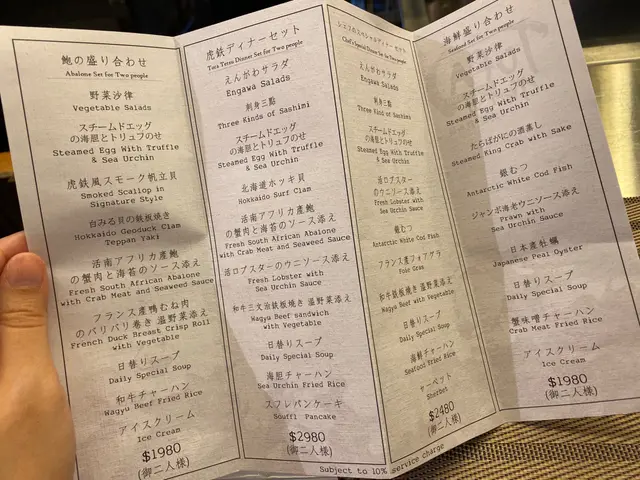 鮑の盛り合わせ
Abalone Set for Two people
野菜沙律
Vegetable Salads
スチームドエッグ
の海胆とトリュフのせ
Steamed Egg With Truffle
& Sea Urchin
虎鉄風スモーク帆立貝
Smoked Scallop in
Signature Style
白みる貝の鉄板焼き
Hokkaido Geoduck Clam
Teppan Yaki
活南アフリカ産鮑
の蟹肉と海苔のソース添え
Fresh South African Abalone
with Crab Meat and Seaweed Sauce
フランス産鴨むね肉
のパリパリ巻き 温野菜添え
French Duck Breast Crisp Roll
with Vegetable
日替りスープ
Daily Special Soup
和牛チャーハン
Wagyu Beef Fried Rice
アイスクリーム
Ice Cream
$1980
(御二人様)
虎鉄ディナーセット
Tora Tetsu Dinner Set for Two people
えんがわサラダ
Engawa Salads
刺身三點
Three Kinds of Sashimi
スチームドエッグ
の海胆とトリュフのせ
Steamed Egg With Truffle
& Sea Urchin
北海道ホッキ貝
Hokkaido Surf Clam
活南アフリカ産鮑
の蟹肉と海苔のソース添え
Fresh South African Abalone
with Crab Meat and Seaweed Sauce
活ロブスターのウニソース添え
Fresh Lobster with
Sea Urchin Sauce
和牛三文治鉄板焼き 温野菜添え
Wagyu Beef sandwich
with Vegetable
日替りスープ
Daily Special Soup
海胆チャーハン
Sea Urchin Fried Rice
スフレパンケーキ
Souffl  Pancake
$2980
(御二人様)
シェフのスペシャルディナーセット
Chef's Special Dinner Set for Two people
えんがわサラダ
Engawa Salads
刺身三點
Three Kinds of Sashimi
スチームドエッグ
の海胆とトリュフのせ
Steamed Egg With Truffle
& Sea Urchin
活ロブスター
のウニソース添え
Fresh Lobster with
Sea Urchin Sauce
銀むつ
Antarctic White Cod Fish
フランス産フォアグラ
Foie Gras
和牛鉄板焼き 温野菜添え
Wagyu Beef with Vegetable
日替りスープ
Daily Special Soup
海鮮チャーハン
Seafood Fried Rice
サーベット
Sherbet
$2480
(御二人様)
海鮮盛り合わせ
Seafood Set for Two people
野菜沙律
Vegetable Salads
スチームドエッグ
の海胆とトリュフのせ
Steamed Egg With Truffle
& Sea Urchin
たらばがにの酒蒸し
Steamed King Crab with Sake
銀むつ
Antarctic White Cod Fish
ジャンボ海老ウニソース添え
Prawn with
Sea Urchin Sauce
日本産牡蠣
Japanese Peal Oyster
日替りスープ
Daily Special Soup
蟹味噌チャーハン
Crab Meat Fried Rice
アイスクリーム
Ice Cream
$1980
(御二人様)
Subject to 10% service charge